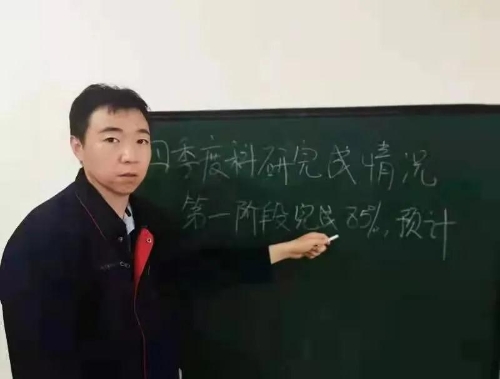 四季度科研完成情况
第一阶段完成85%,预计